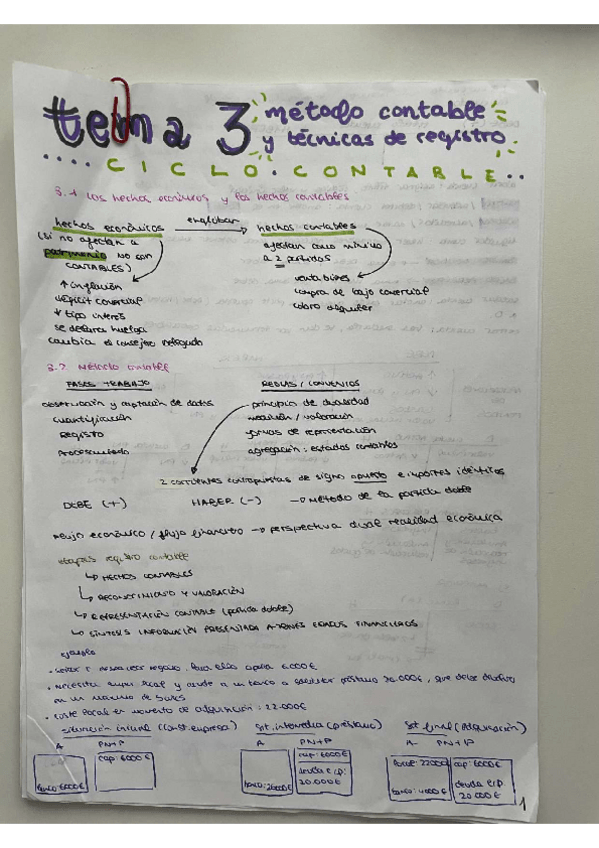 tema 3 método contable
y técnicas de registro
.... CICLO. CONTABLE...
3.1 Los hechos económicos y los hechos contables
hechos económicos englobar hechos contables
(si no afectan a
patrimonio no son
CONTABLES)
afectan como mínimo
a 2 partidas
↑ inflación
déficit comercial
↓ tipo interés
se declara huelga
cambia el consejero delegado
venta bienes
compra de bajo comercial
cobro alquiler
3.2 Método contable
FASES TRABAJO
observación y captación de datos
cuantificación
registro
procesamiento
REGLAS / CONVENIOS
principio de dualidad
medición / valoración
formas de representación
agregación: estados contables
2 corrientes contrapuestas de signo opuesto e importes idénticos
DEBE (+) HABER (-) → Método de la partida doble
flujo económico / flujo financiero → perspectiva dual realidad económica
etapas registro contable
↳ HECHOS CONTABLES
↳ RECONOCIMIENTO Y VALORACIÓN
↳ REPRESENTACIÓN CONTABLE (partida doble)
↳ SÍNTESIS INFORMACIÓN PRESENTADA A TRAVÉS ESTADOS FINANCIEROS
ejemplo
negocio. Para ello aporta 6.000€
• Necesita local y acude a un banco a solicitar préstamo 20.000€, que debe devolver
en un máximo de 5
• coste local en momento de adquisición: 22.000€
situación inicial (Const. empresa) Sit. intermedia (préstamo) Sit final (Adquisición)
A PN+P A PN+P A PN+P
cap: 6000€
banco: 6000€
cap: 6000€
deuda c.p:
20.000€
banco: 26000€
local: 22000€
banco: 4000€
cap: 6000€
deuda c.p:
20.000€
1